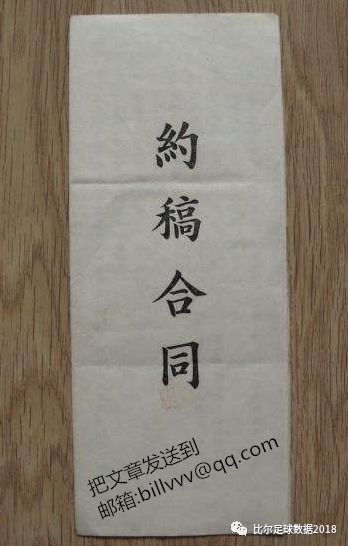 約稿合同
把文章发送到
邮箱:billvvv@qq.com
比尔足球数据2018